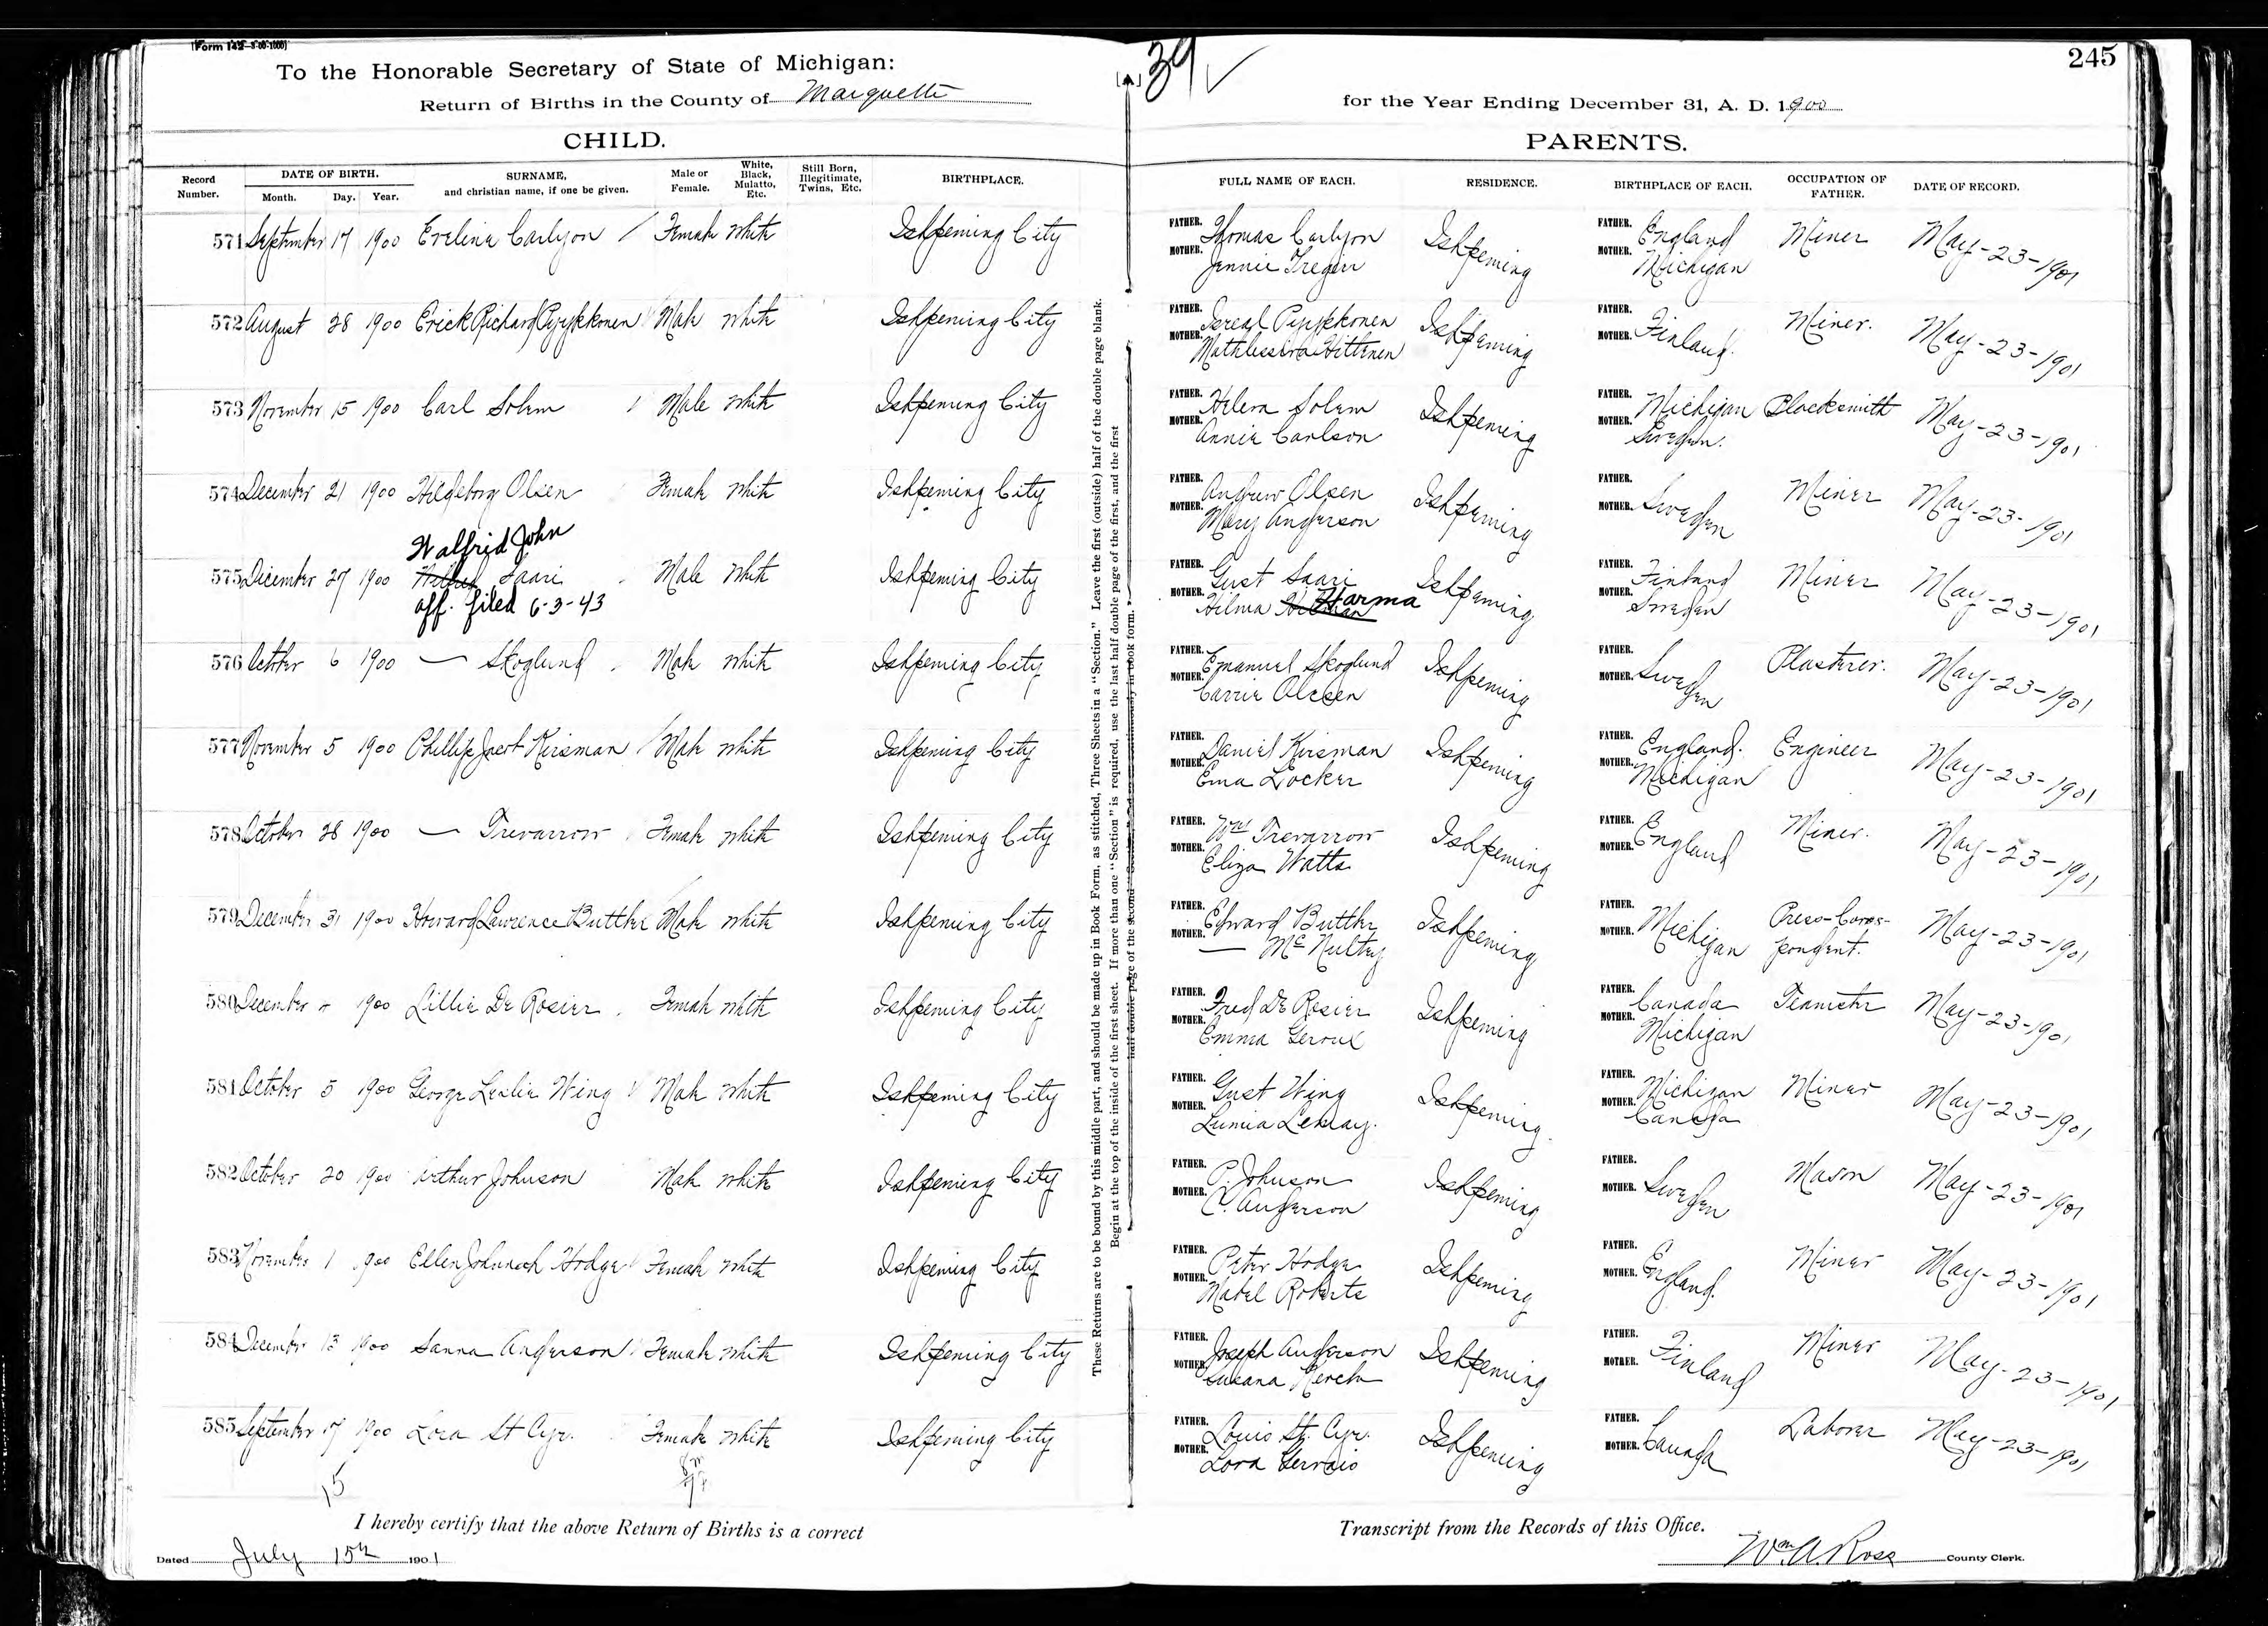 [Form 142-3-00-1000]
To the Honorable Secretary of State of Michigan:
Return of Births in the County of Marquette
39 ✓
for the Year Ending December 31, A. D. 1900
245
CHILD.
PARENTS.
Record Number. DATE OF BIRTH. Month. Day. Year. SURNAME, and christian name, if one be given. Male or Female. White, Black, Mulatto, Etc. Still Born, Illegitimate, Twins, Etc. BIRTHPLACE. FULL NAME OF EACH. RESIDENCE. BIRTHPLACE OF EACH. OCCUPATION OF FATHER. DATE OF RECORD.
571 September 17 1900 Evelina Carlyon Female White Ishpeming City FATHER. Thomas Carlyon Ishpeming FATHER. England Miner May-23-1901
MOTHER. Jennie Tregear MOTHER. Michigan
572 August 28 1900 Erick Richard Pyykkonen Male White Ishpeming City FATHER. Isreal Pyykkonen Ishpeming FATHER. Finland. Miner. May-23-1901
MOTHER. Hittenen MOTHER.
573 November 15 1900 Carl Solem Male White Ishpeming City FATHER. Helem Solem Ishpeming FATHER. Michigan Blacksmith May-23-1901
MOTHER. Annie Carlson MOTHER. Sweden.
574 December 21 1900 Hildeborg Olsen Female White Ishpeming City FATHER. Andrew Olsen Ishpeming FATHER. Sweden Miner May-23-1901
MOTHER. Mary Anderson MOTHER.
Walfrid John
575 December 27 1900 Wilfred Saari Male White Ishpeming City FATHER. Gust Saari Ishpeming FATHER. Finland Miner May-23-1901
aff. filed 6-3-43 MOTHER. Hilma Harma MOTHER. Sweden
576 October 6 1900 — Skoglund Male White Ishpeming City FATHER. Emanuel Skoglund Ishpeming FATHER. Sweden Plasterer. May-23-1901
MOTHER. Carrie Olesen MOTHER.
577 November 5 1900 Phillip Kirsman Male White Ishpeming City FATHER. Daniel Kirsman Ishpeming FATHER. England. Engineer May-23-1901
MOTHER. Ema Locker MOTHER. Michigan
578 October 28 1900 — Trevarrow Female White Ishpeming City FATHER. Wm Trevarrow Ishpeming FATHER. England Miner. May-23-1901
MOTHER. Eliza Watts MOTHER.
579 December 31 1900 Howard Lawrence Buttler Male White Ishpeming City FATHER. Edward Buttler Ishpeming FATHER. Michigan Press-Corres- May-23-1901
MOTHER. — McNultey MOTHER. pondent.
580 December 1900 Lillie De Rosier Female White Ishpeming City FATHER. Fred De Rosier Ishpeming FATHER. Canada Teamster May-23-1901
MOTHER. Emma Geroux MOTHER. Michigan
581 October 5 1900 George Leslie Wing Male White Ishpeming City FATHER. Gust Wing Ishpeming FATHER. Michigan Miner May-23-1901
MOTHER. Lumia Lemay. MOTHER. Canada
582 October 20 1900 Arthur Johnson Male White Ishpeming City FATHER. P. Johnson Ishpeming FATHER. Sweden Mason May-23-1901
MOTHER. C. Anderson MOTHER.
583 November 1 1900 Ellen Johannah Hodge Female White Ishpeming City FATHER. Peter Hodge Ishpeming FATHER. England. Miner May-23-1901
MOTHER. Mabel Roberts MOTHER.
584 December 13 1900 Sanna Anderson Female White Ishpeming City FATHER. Joseph Anderson Ishpeming FATHER. Finland Miner May-23-1901
MOTHER. Susana MOTHER.
585 September 17 1900 Lora St Cyr. Female White Ishpeming City FATHER. Louis St. Cyr. Ishpeming FATHER. Canada Laborer May-23-1901
MOTHER. Lora Gervais MOTHER.
15
8m
7f
These Returns are to be bound by this middle part, and should be made up in Book Form, as stitched, Three Sheets in a "Section." Leave the first (outside) half of the double page blank.
Begin at the top of the inside of the first sheet. If more than one "Section" is required, use the last half double page of the first, and the first
half double page of the second "Section," and so continuously in book form.
I hereby certify that the above Return of Births is a correct Transcript from the Records of this Office.
Dated July 15th 1901 Wm. A. Ross County Clerk.